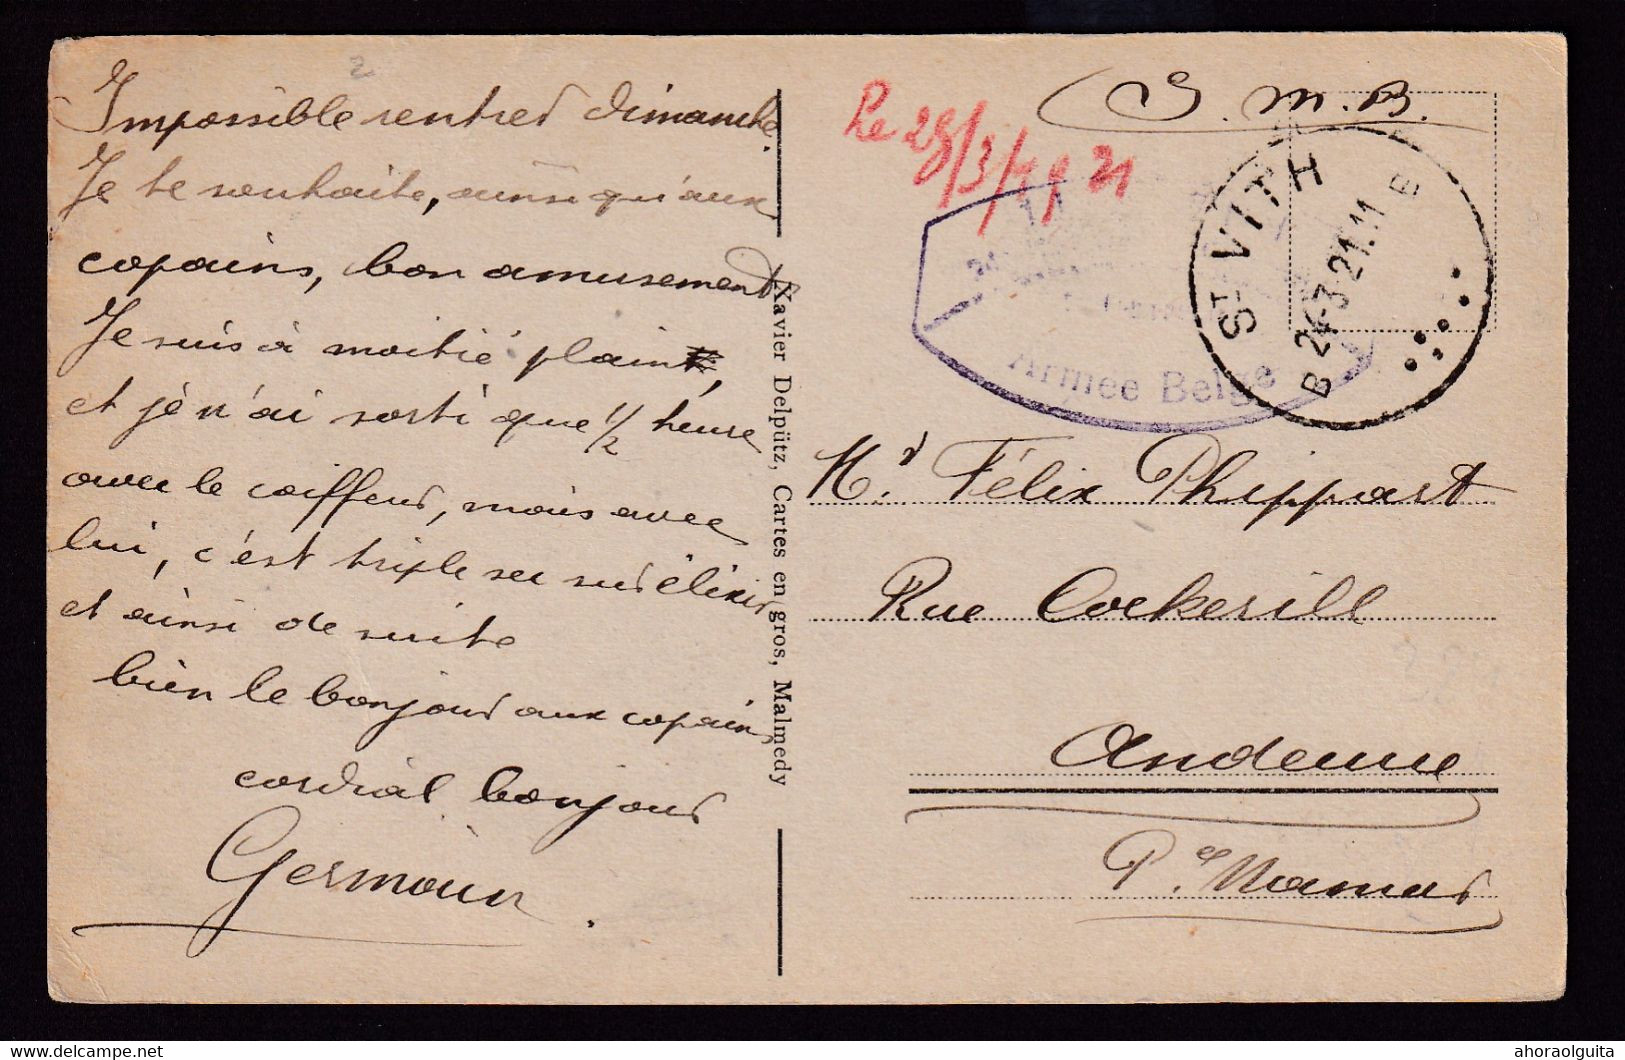 Impossible rentrer dimanche.
Je te souhaite, ainsi qu'aux
copains, bon amusement
Je suis à moitié plaint,
et je n'ai sorti que 1/2 heure
avec le coiffeur, mais avec
lui, c'est triple sec sur élixir
et ainsi de suite
bien le bonjour aux copains
cordial bonjour
Germain.
Xavier Delpütz, Cartes en gros, Malmedy
S. M. B.
Le 28/3/1921
ST VITH
B 24-3-21.11 E
Armée Belge
Mr. Félix Phippart
Rue Cockerill
Andenne
Pce. Namur
2
www.delcampe.net
ahoraolguita